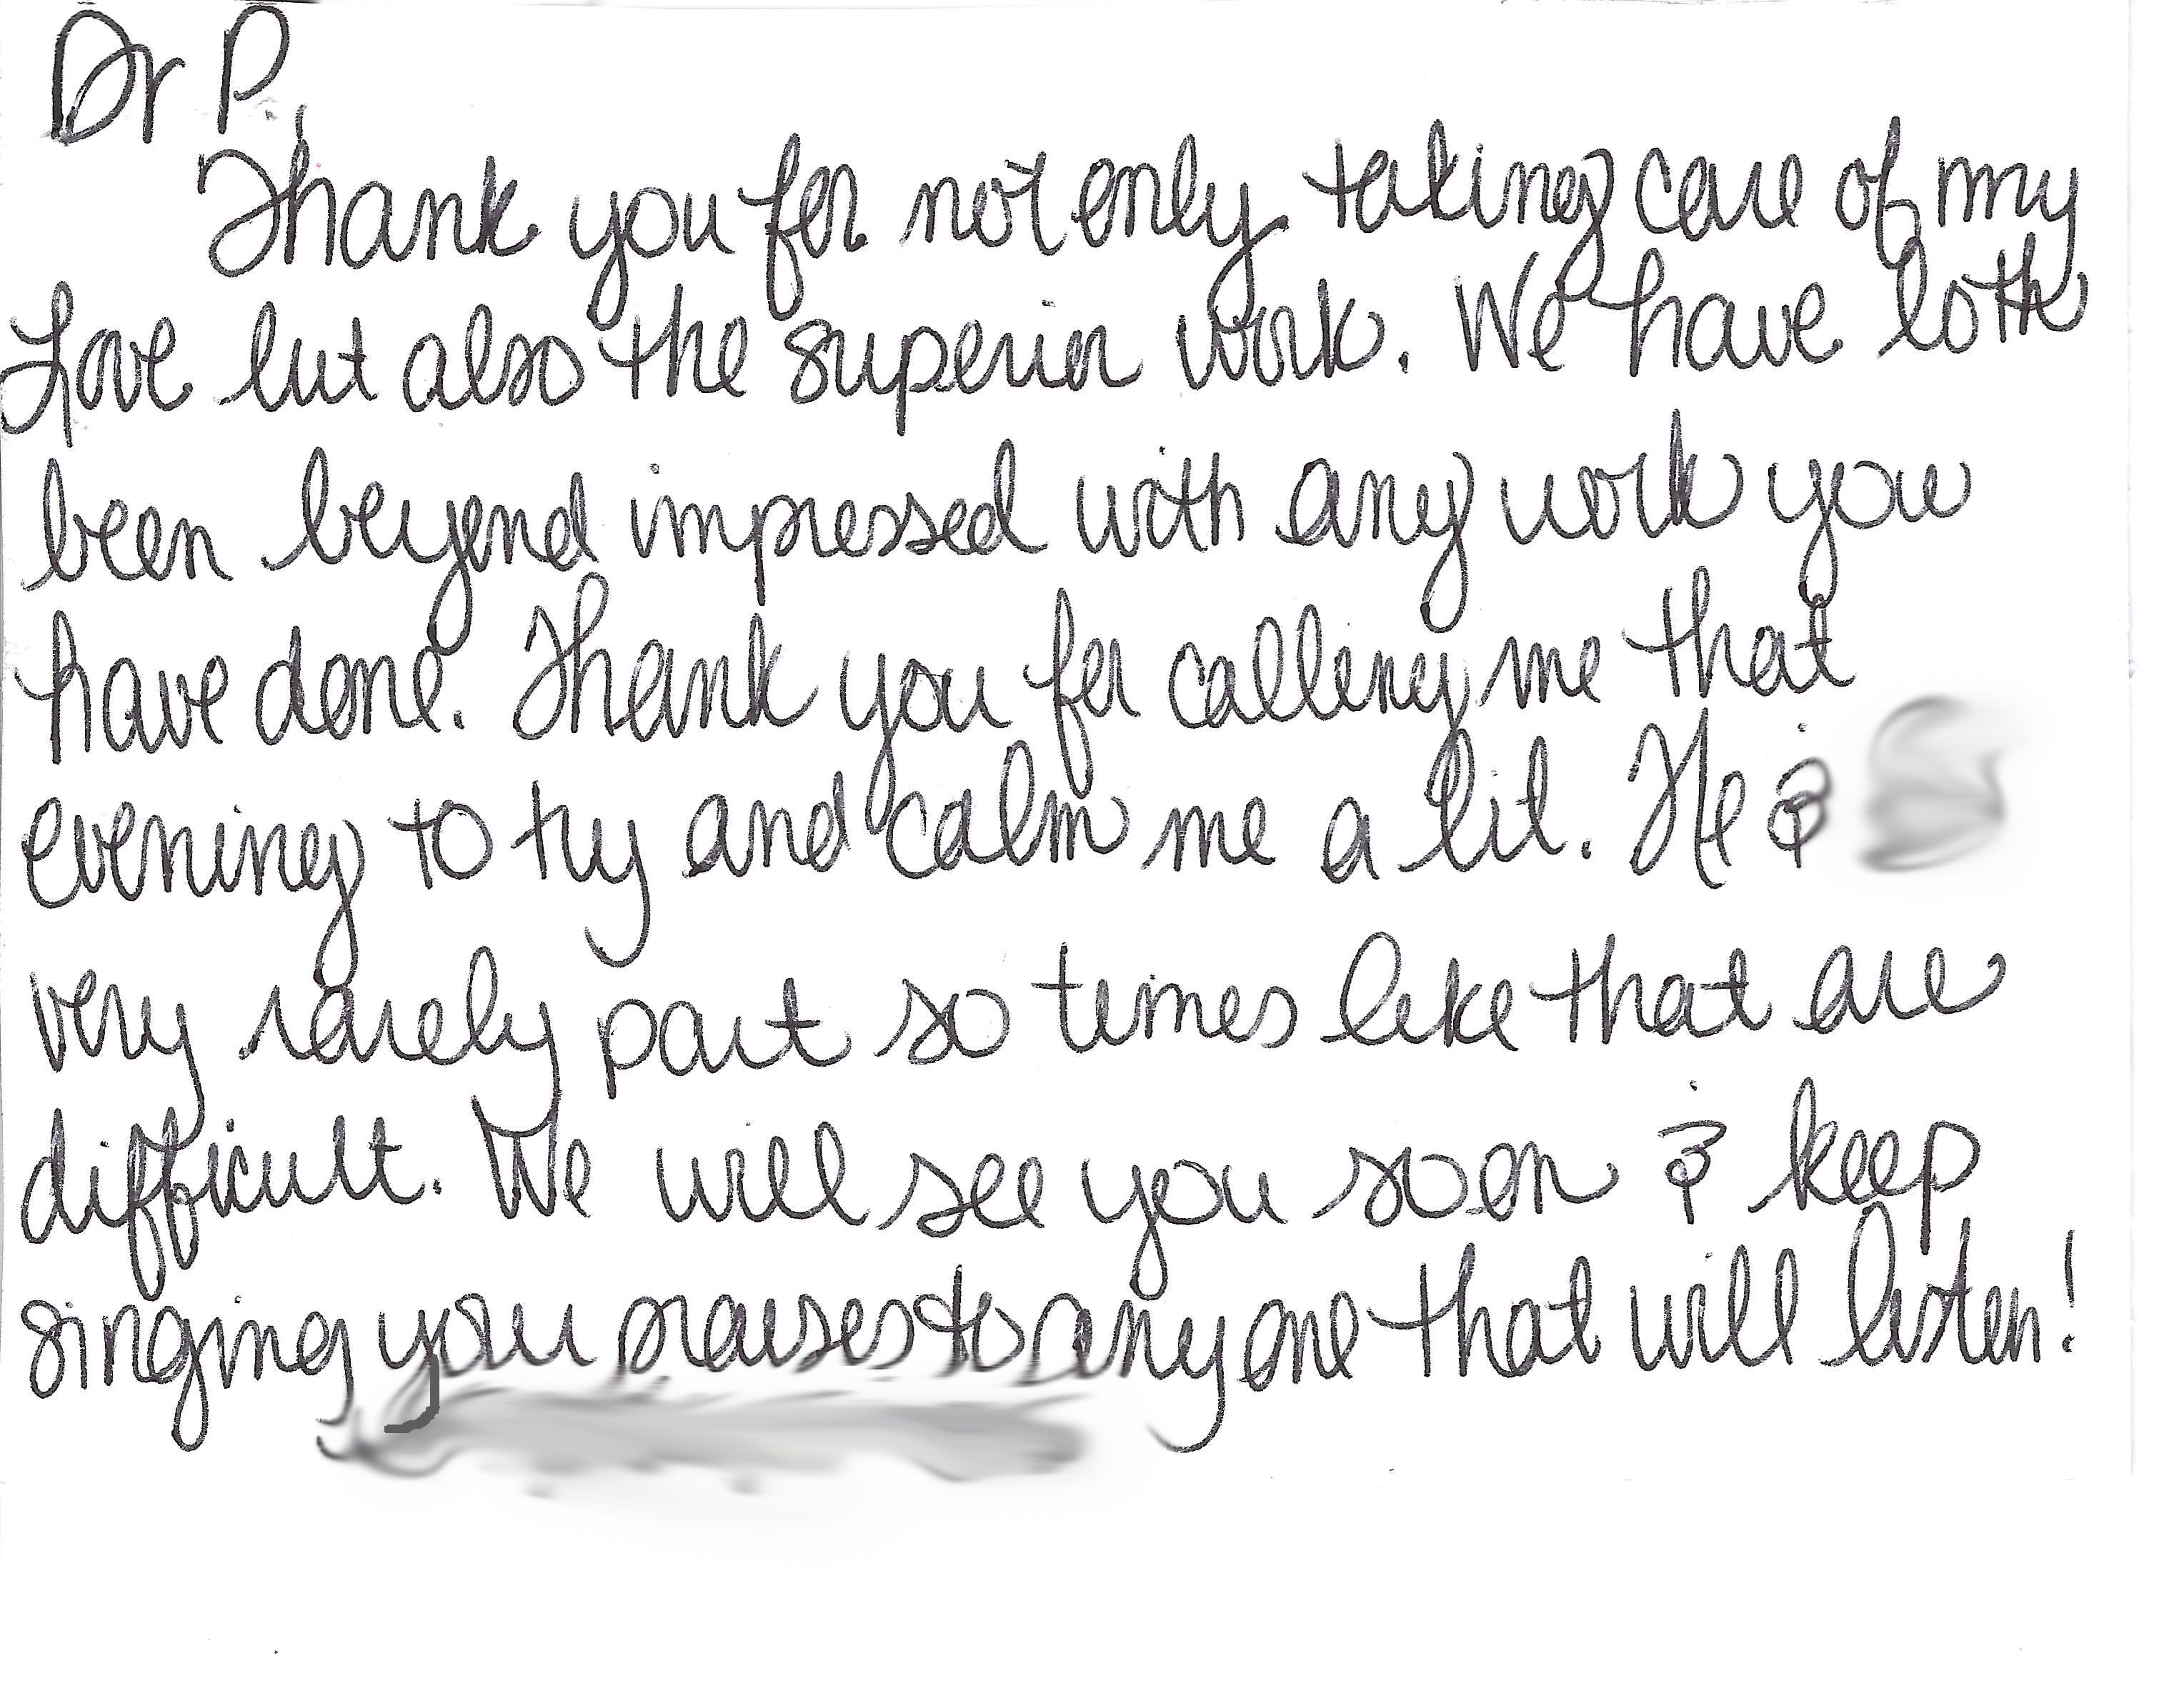 Dr P,
Thank you for not only taking care of my
Love but also the superior work. We have both
been beyond impressed with any work you
have done. Thank you for calling me that
evening to try and calm me a bit. He &
very rarely part so times like that are
difficult. We will see you soon & keep
singing your praises to anyone that will listen!